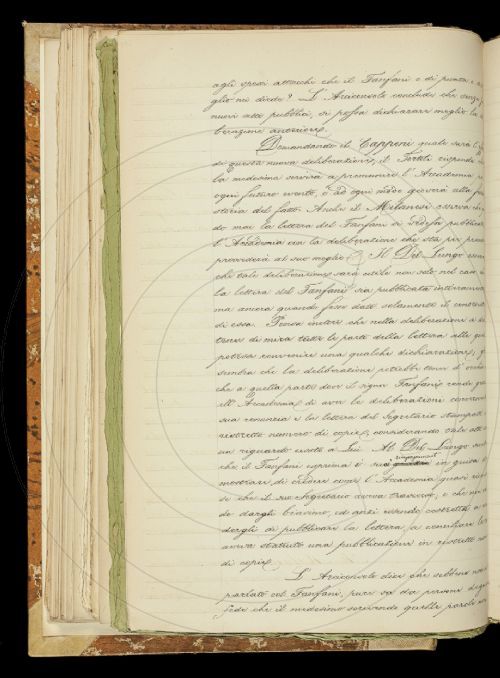 agli spessi attacchi che il Fanfani o di punta o
glio nè diede? L'Arciconsolo conclude che senza
nuovi atti pubblici, si possa dichiarare meglio la
berazione anteriore.
Domandando il Capponi quale sarà l'
di questa nuova deliberazione, il Tortoli risponde
la medesima servirà a premunire l'Accademia
ogni futuro evento, e ad ogni modo gioverà alla
storia del fatto. Anche il Milanesi osserva che
do mai la lettera del Fanfani si vedesse pubblicata
l'Accademia con la deliberazione che sta per prendere
provvederà al suo meglio. Il Del Lungo
che tale deliberazione sarà utile non solo nel caso
la lettera del Fanfani sia pubblicata interamente
ma ancora quando fosse dato solamente il
di essa. Pensa inoltre che nella deliberazione
tener di mira tutte le parti della lettera alle
potesse convenire una qualche dichiarazione,
sembra che la deliberazione potrebbe tener d'occhio
che a quella parte dove il signor Fanfani rende
all'Accademia di aver la deliberazione
sua renuncia e la lettera del Segretario stampata
ristretto numero di copie, considerando tale atto
un riguardo usato a Lui. Al Del Lungo
che il Fanfani esprima i suoi ringraziamenti in guisa
mostrare di credere come l'Accademia quasi
se che il suo Segretario aveva trascorso, e che
de dargli biasimo, ed anzi essendo costretta a
dargli di pubblicare la lettera, a conciliare
avesse statuito una pubblicazione in ristretto
di copie.
L'Arciconsolo dice che sebbene non
parlato col Fanfani, pure sa da persone degne
fede che il medesimo scrivendo quelle parole non